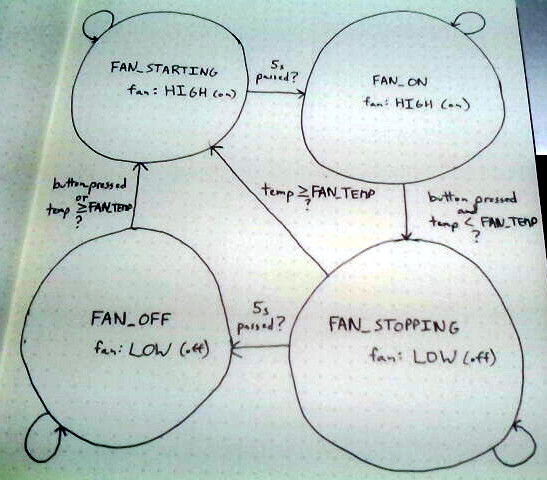 FAN_STARTING
fan: HIGH (on)
5s
passed?
FAN_ON
fan: HIGH (on)
button pressed
or
temp ≥ FAN_TEMP
?
temp ≥ FAN_TEMP
?
button pressed
and
temp < FAN_TEMP
?
FAN_OFF
fan: LOW (off)
5s
passed?
FAN_STOPPING
fan: LOW (off)